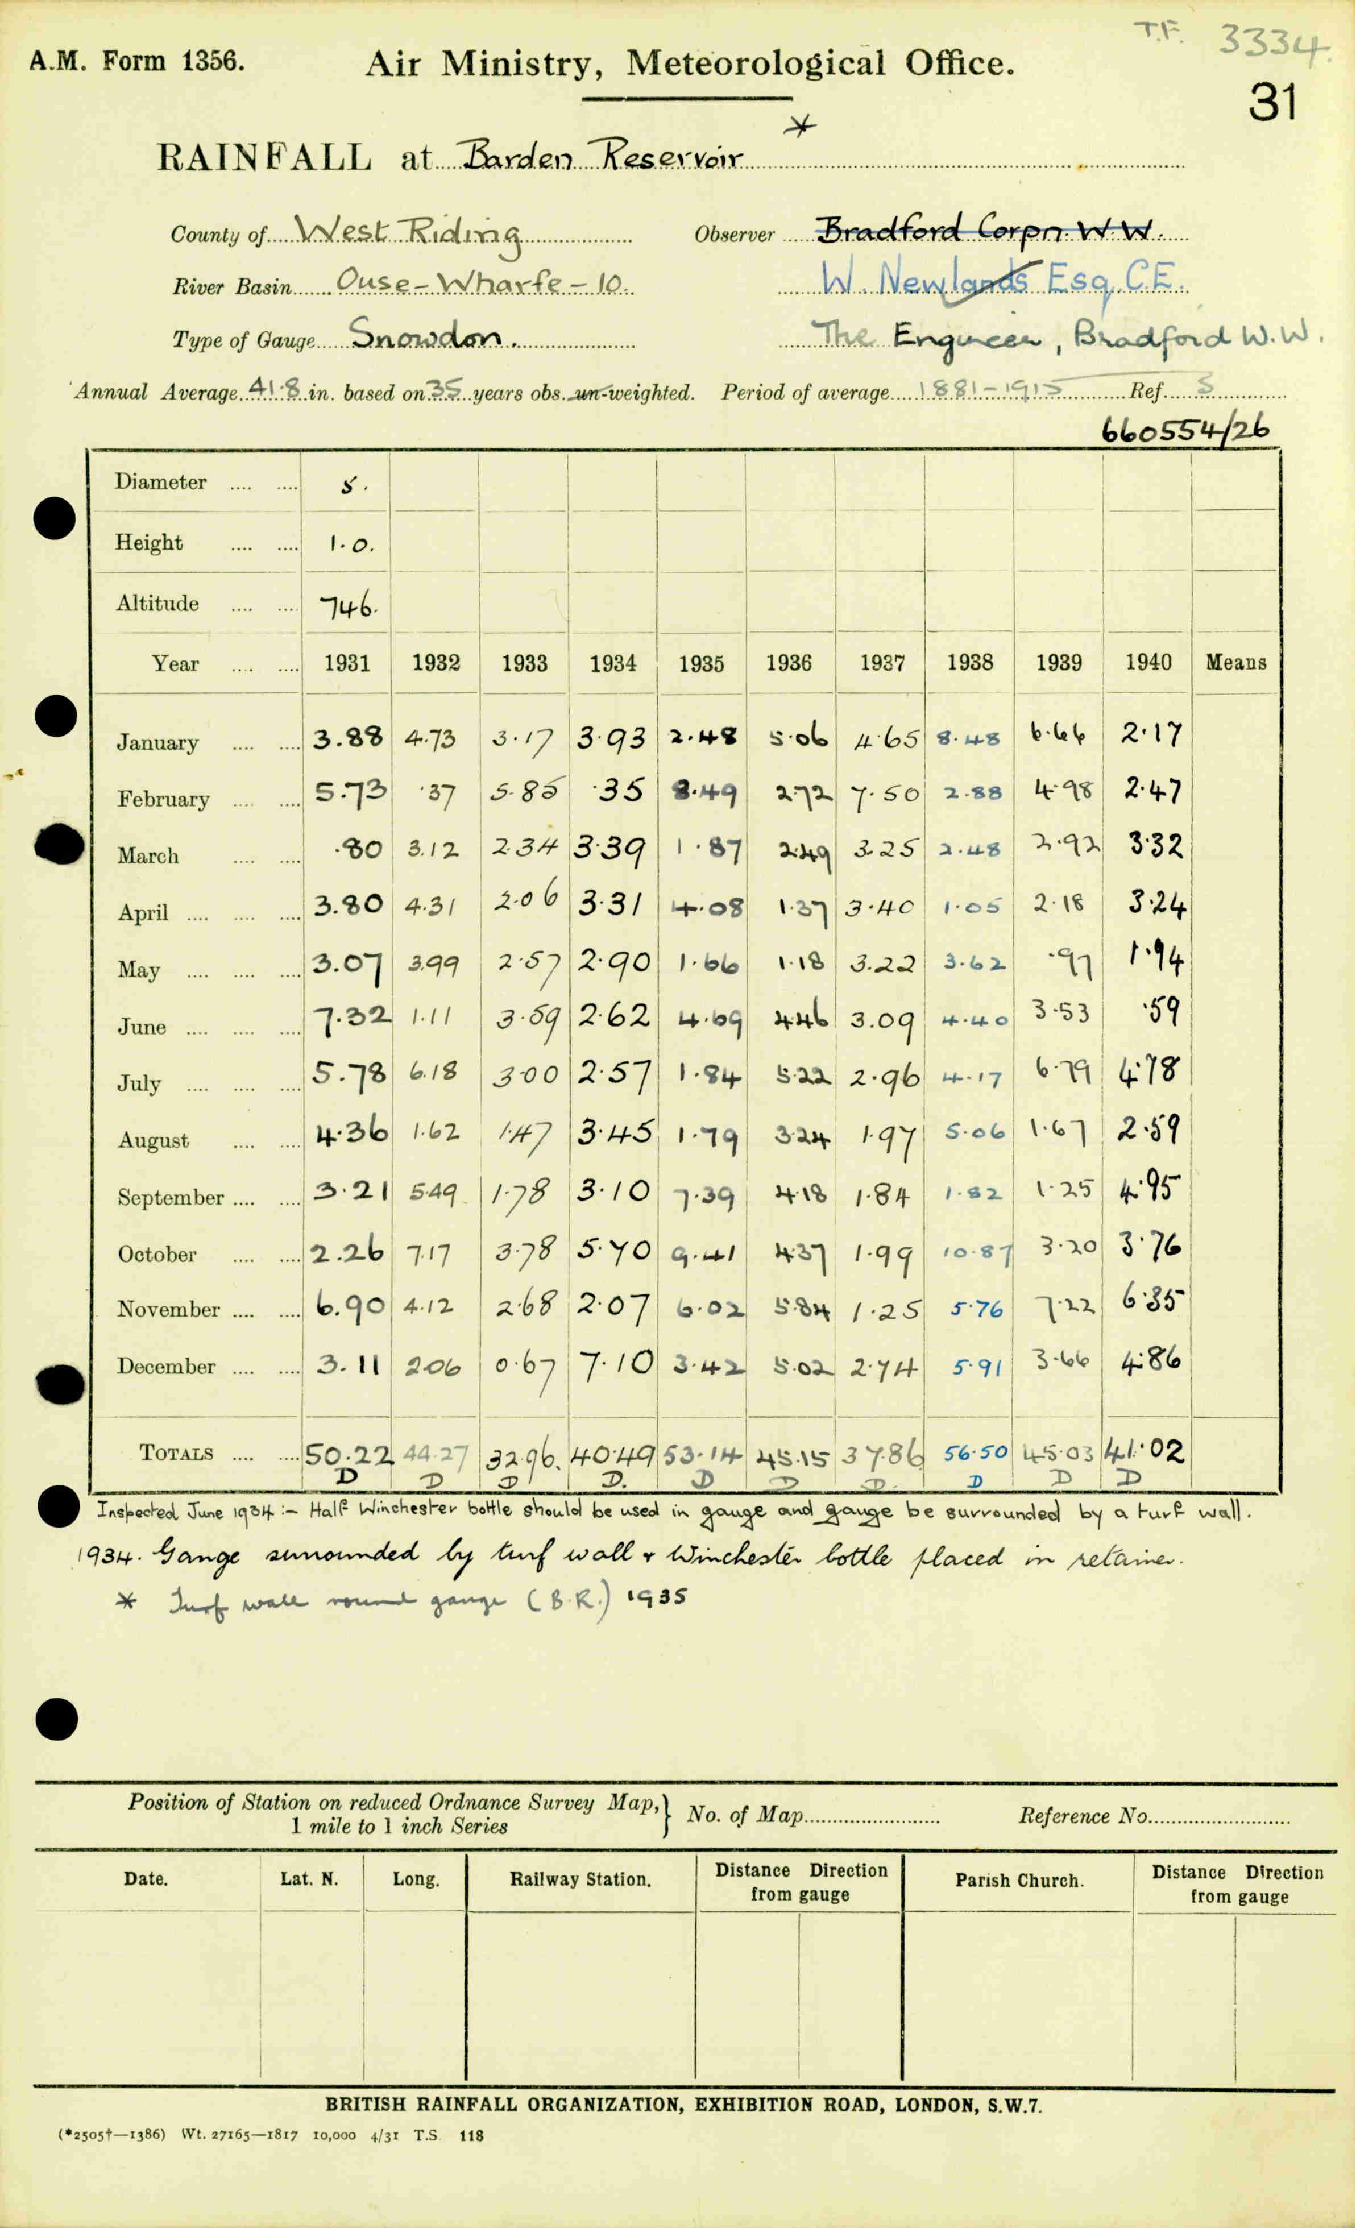 T.F. 3334.
A.M. Form 1356. Air Ministry, Meteorological Office.
31
RAINFALL at Barden Reservoir *
County of West Riding Observer Bradford Corpn. W.W.
River Basin Ouse-Wharfe-10. W. Newlands Esq C.E.
Type of Gauge Snowdon. The Engineer, Bradford W.W.
Annual Average 41.8 in. based on 35 years obs. un-weighted. Period of average 1881-1915 Ref. S
660554/26
Diameter .... .... 5.
Height .... .... 1.0.
Altitude .... .... 746.
Year .... .... 1931 1932 1933 1934 1935 1936 1937 1938 1939 1940 Means
January .... .... 3.88 4.73 3.17 3.93 2.48 5.06 4.65 8.48 6.66 2.17
February .... .... 5.73 .37 5.85 .35 8.49 2.72 7.50 2.88 4.98 2.47
March .... .... .80 3.12 2.34 3.39 1.87 2.49 3.25 2.48 2.92 3.32
April .... .... .... 3.80 4.31 2.06 3.31 4.08 1.37 3.40 1.05 2.18 3.24
May .... .... .... 3.07 3.99 2.57 2.90 1.66 1.18 3.22 3.62 .97 1.94
June .... .... .... 7.32 1.11 3.59 2.62 4.69 4.46 3.09 4.40 3.53 .59
July .... .... .... 5.78 6.18 3.00 2.57 1.84 5.22 2.96 4.17 6.79 4.78
August .... .... 4.36 1.62 1.47 3.45 1.79 3.24 1.97 5.06 1.67 2.59
September .... .... 3.21 5.49 1.78 3.10 7.39 4.18 1.84 1.82 1.25 4.95
October .... .... 2.26 7.17 3.78 5.70 9.41 4.37 1.99 10.87 3.20 3.76
November .... .... 6.90 4.12 2.68 2.07 6.02 5.84 1.25 5.76 7.22 6.35
December .... .... 3.11 2.06 0.67 7.10 3.42 5.02 2.74 5.91 3.66 4.86
TOTALS .... .... 50.22 44.27 32.96. 40.49 53.14 45.15 37.86 56.50 45.03 41.02
D D D D. D D D. D D D
Inspected June 1934:- Half Winchester bottle should be used in gauge and gauge be surrounded by a turf wall.
1934. Gauge surrounded by turf wall & Winchester bottle placed in retainer.
* Turf wall round gauge (B.R.) 1935
Position of Station on reduced Ordnance Survey Map, } No. of Map Reference No.
1 mile to 1 inch Series
Date. Lat. N. Long. Railway Station. Distance Direction from gauge Parish Church. Distance Direction from gauge
BRITISH RAINFALL ORGANIZATION, EXHIBITION ROAD, LONDON, S.W.7.
(*2505†—1386) Wt. 27165—1817 10,000 4/31 T.S. 118